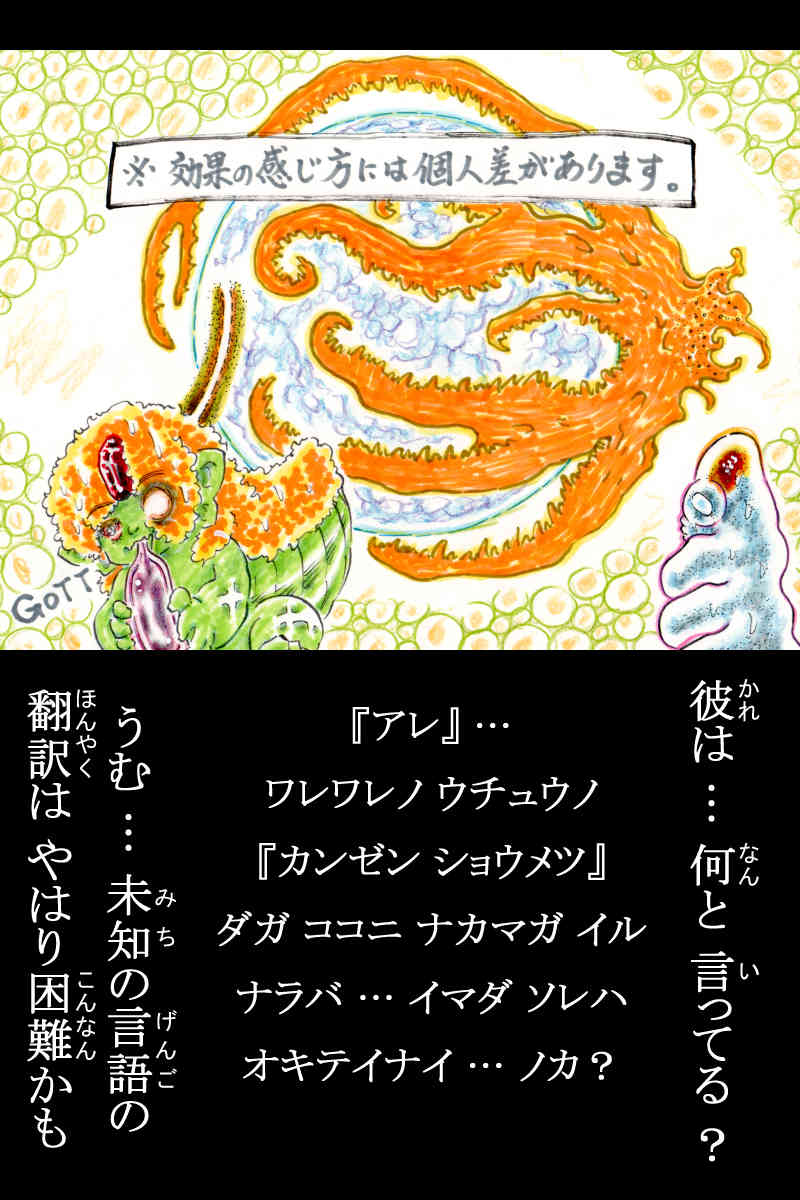 ※ 効果の感じ方には個人差があります。
GOTT
彼は… 何と 言ってる ?
かれ
なん
い
『アレ』…
ワレワレノ ウチュウノ
『カンゼン ショウメツ』
ダガ ココニ ナカマガ イル
ナラバ … イマダ ソレハ
オキテイナイ … ノカ ?
うむ… 未知の言語の
みち
げんご
翻訳は やはり困難かも
ほんやく
こんなん